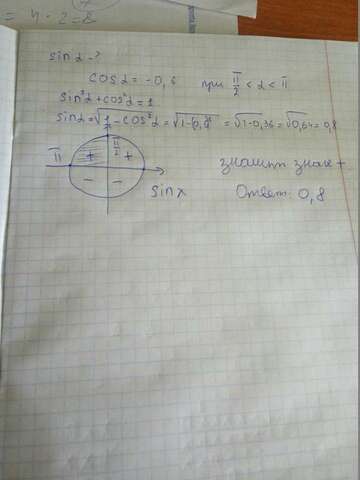 = 4 · 2 = 8
sin α - ?
cos α = -0,6 при π/2 < α < π
sin²α + cos²α = 1
sin α = √1 - cos²α = √1-(0,6)² = √1-0,36 = √0,64 = 0,8
π + π/2 +
значит знак +
- -
sin x
Ответ: 0,8